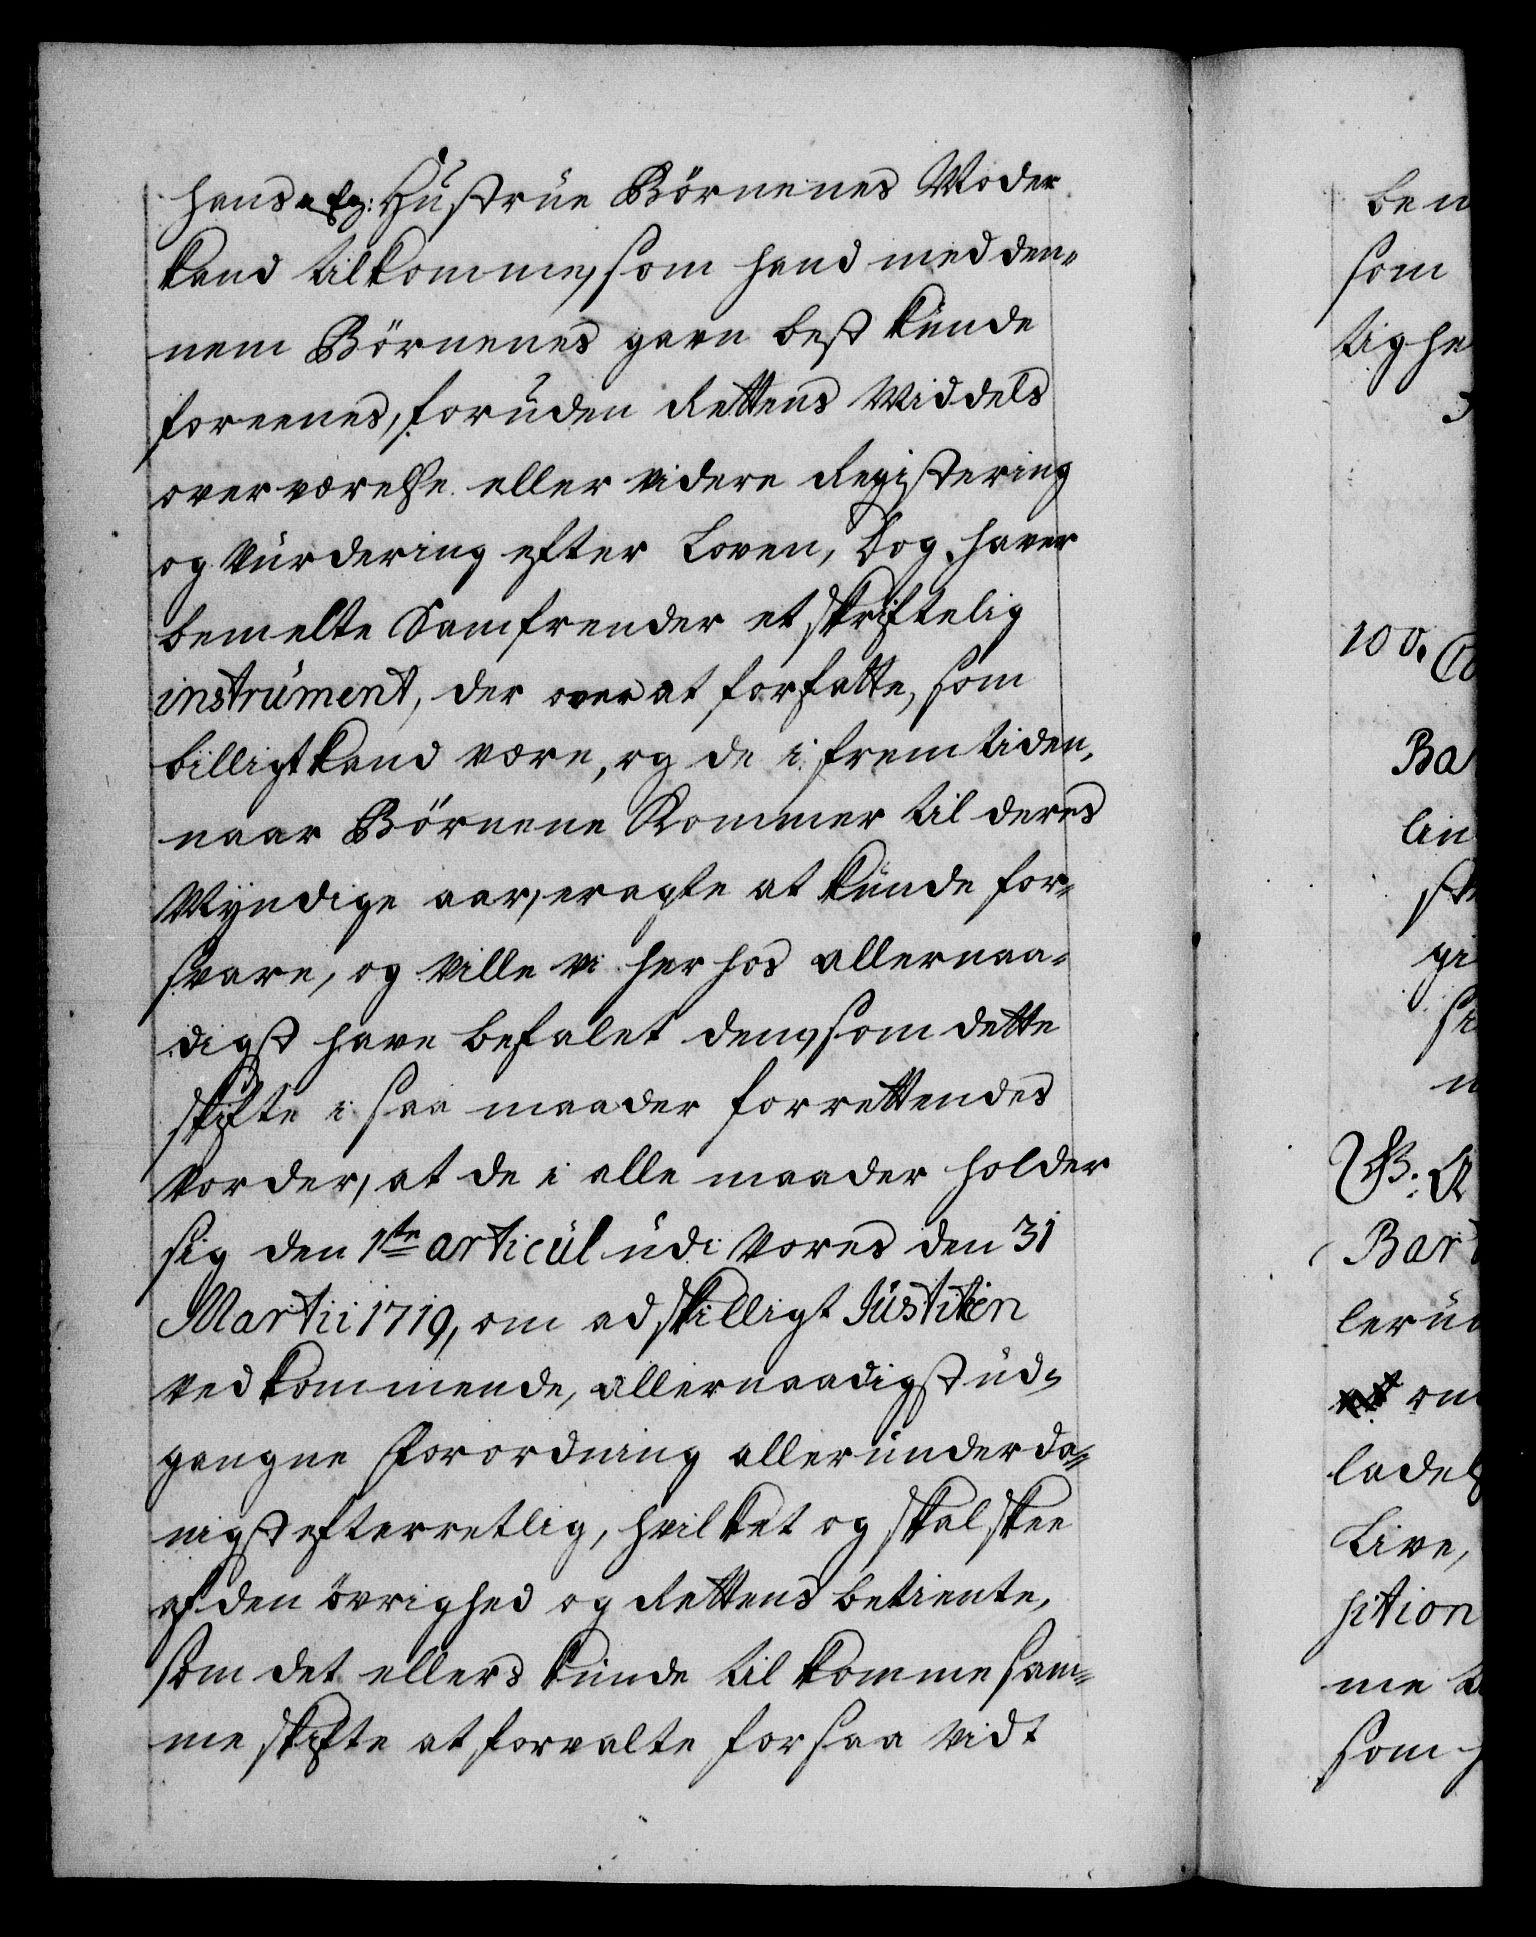 hans Hustrüe Börnenes Moder
kand tilkomme, som hand med den-
nem Börnenes gavn best kunde
foreenes, foruden Rettens Middels
overværelse eller videre Registering
og Vurdering efter Loven, Dog haver
bemelte Samfrender et skriftelig
instrument, der over at forfatte, som
billigt kand være, og de i fremtiden,
naar Börnene Kommer til deres
Myndige aar, eragte at kunde for-
svare, og Ville vi her hos allernaa-
digst have befalet dem, som dette
skifte i saa maader forrettendes
vorder, at de i alle maader holder
sig den 1ste articul udi Vores den 31
Martii 1719, om adskilligt Justitien
vedkommende, allernaadigst ud-
gangne Forordning allerunderda-
nigst efterretlig, hvilket og skal skee
af den övrighed og Rettens betiente,
som det ellers kunde til komme sam-
me skifte at forvalte for saa vidt
ben
som
tighe
100.
Ba
lin
gi
B: A
Bart
lerud
om
ladel
Live,
sition
me
som